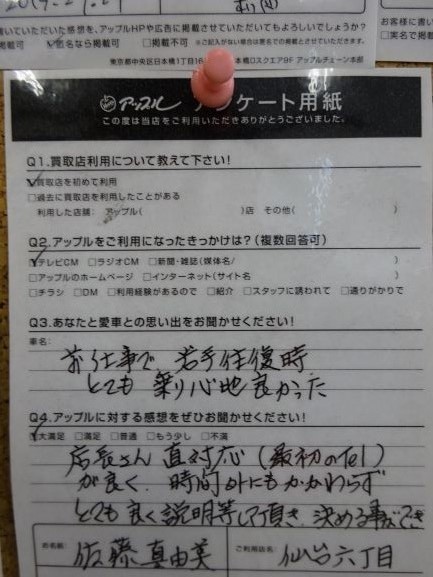 書いていただいた感想を、アップルHPや広告に掲載させていただいてもよろしいでしょうか?
匿名なら掲載可 □掲載不可 ※ご記入がない場合は匿名での掲載とさせていただきます。
お客様に書い
□実名で掲
東京都中央区日本橋1丁目16 本橋ロスクエア9F アップルチェーン本部
アップル アンケート用紙
この度は当店をご利用いただきありがとうございました。
Q1.買取店利用について教えて下さい!
☑買取店を初めて利用
□過去に買取店を利用したことがある
利用した店舗: アップル( )店 その他( )
Q2.アップルをご利用になったきっかけは?(複数回答可)
☑テレビCM □ラジオCM □新聞・雑誌(媒体名/ )
□アップルのホームページ □インターネット(サイト名 )
□チラシ □DM □利用経験があるので □紹介 □スタッフに誘われて □通りがかりで
Q3.あなたと愛車との思い出をお聞かせください!
車名:
お仕事で 岩手往復時
とても 乗り心地良かった
Q4.アップルに対する感想をぜひお聞かせください!
☑大満足 □満足 □普通 □もう少し □不満
店長さん 直対応(最初のTel)
が良く、時間外にもかかわらず
とても良く説明等して頂き、決める事ができ
お名前: 佐藤真由美 ご利用店名: 仙台六丁目